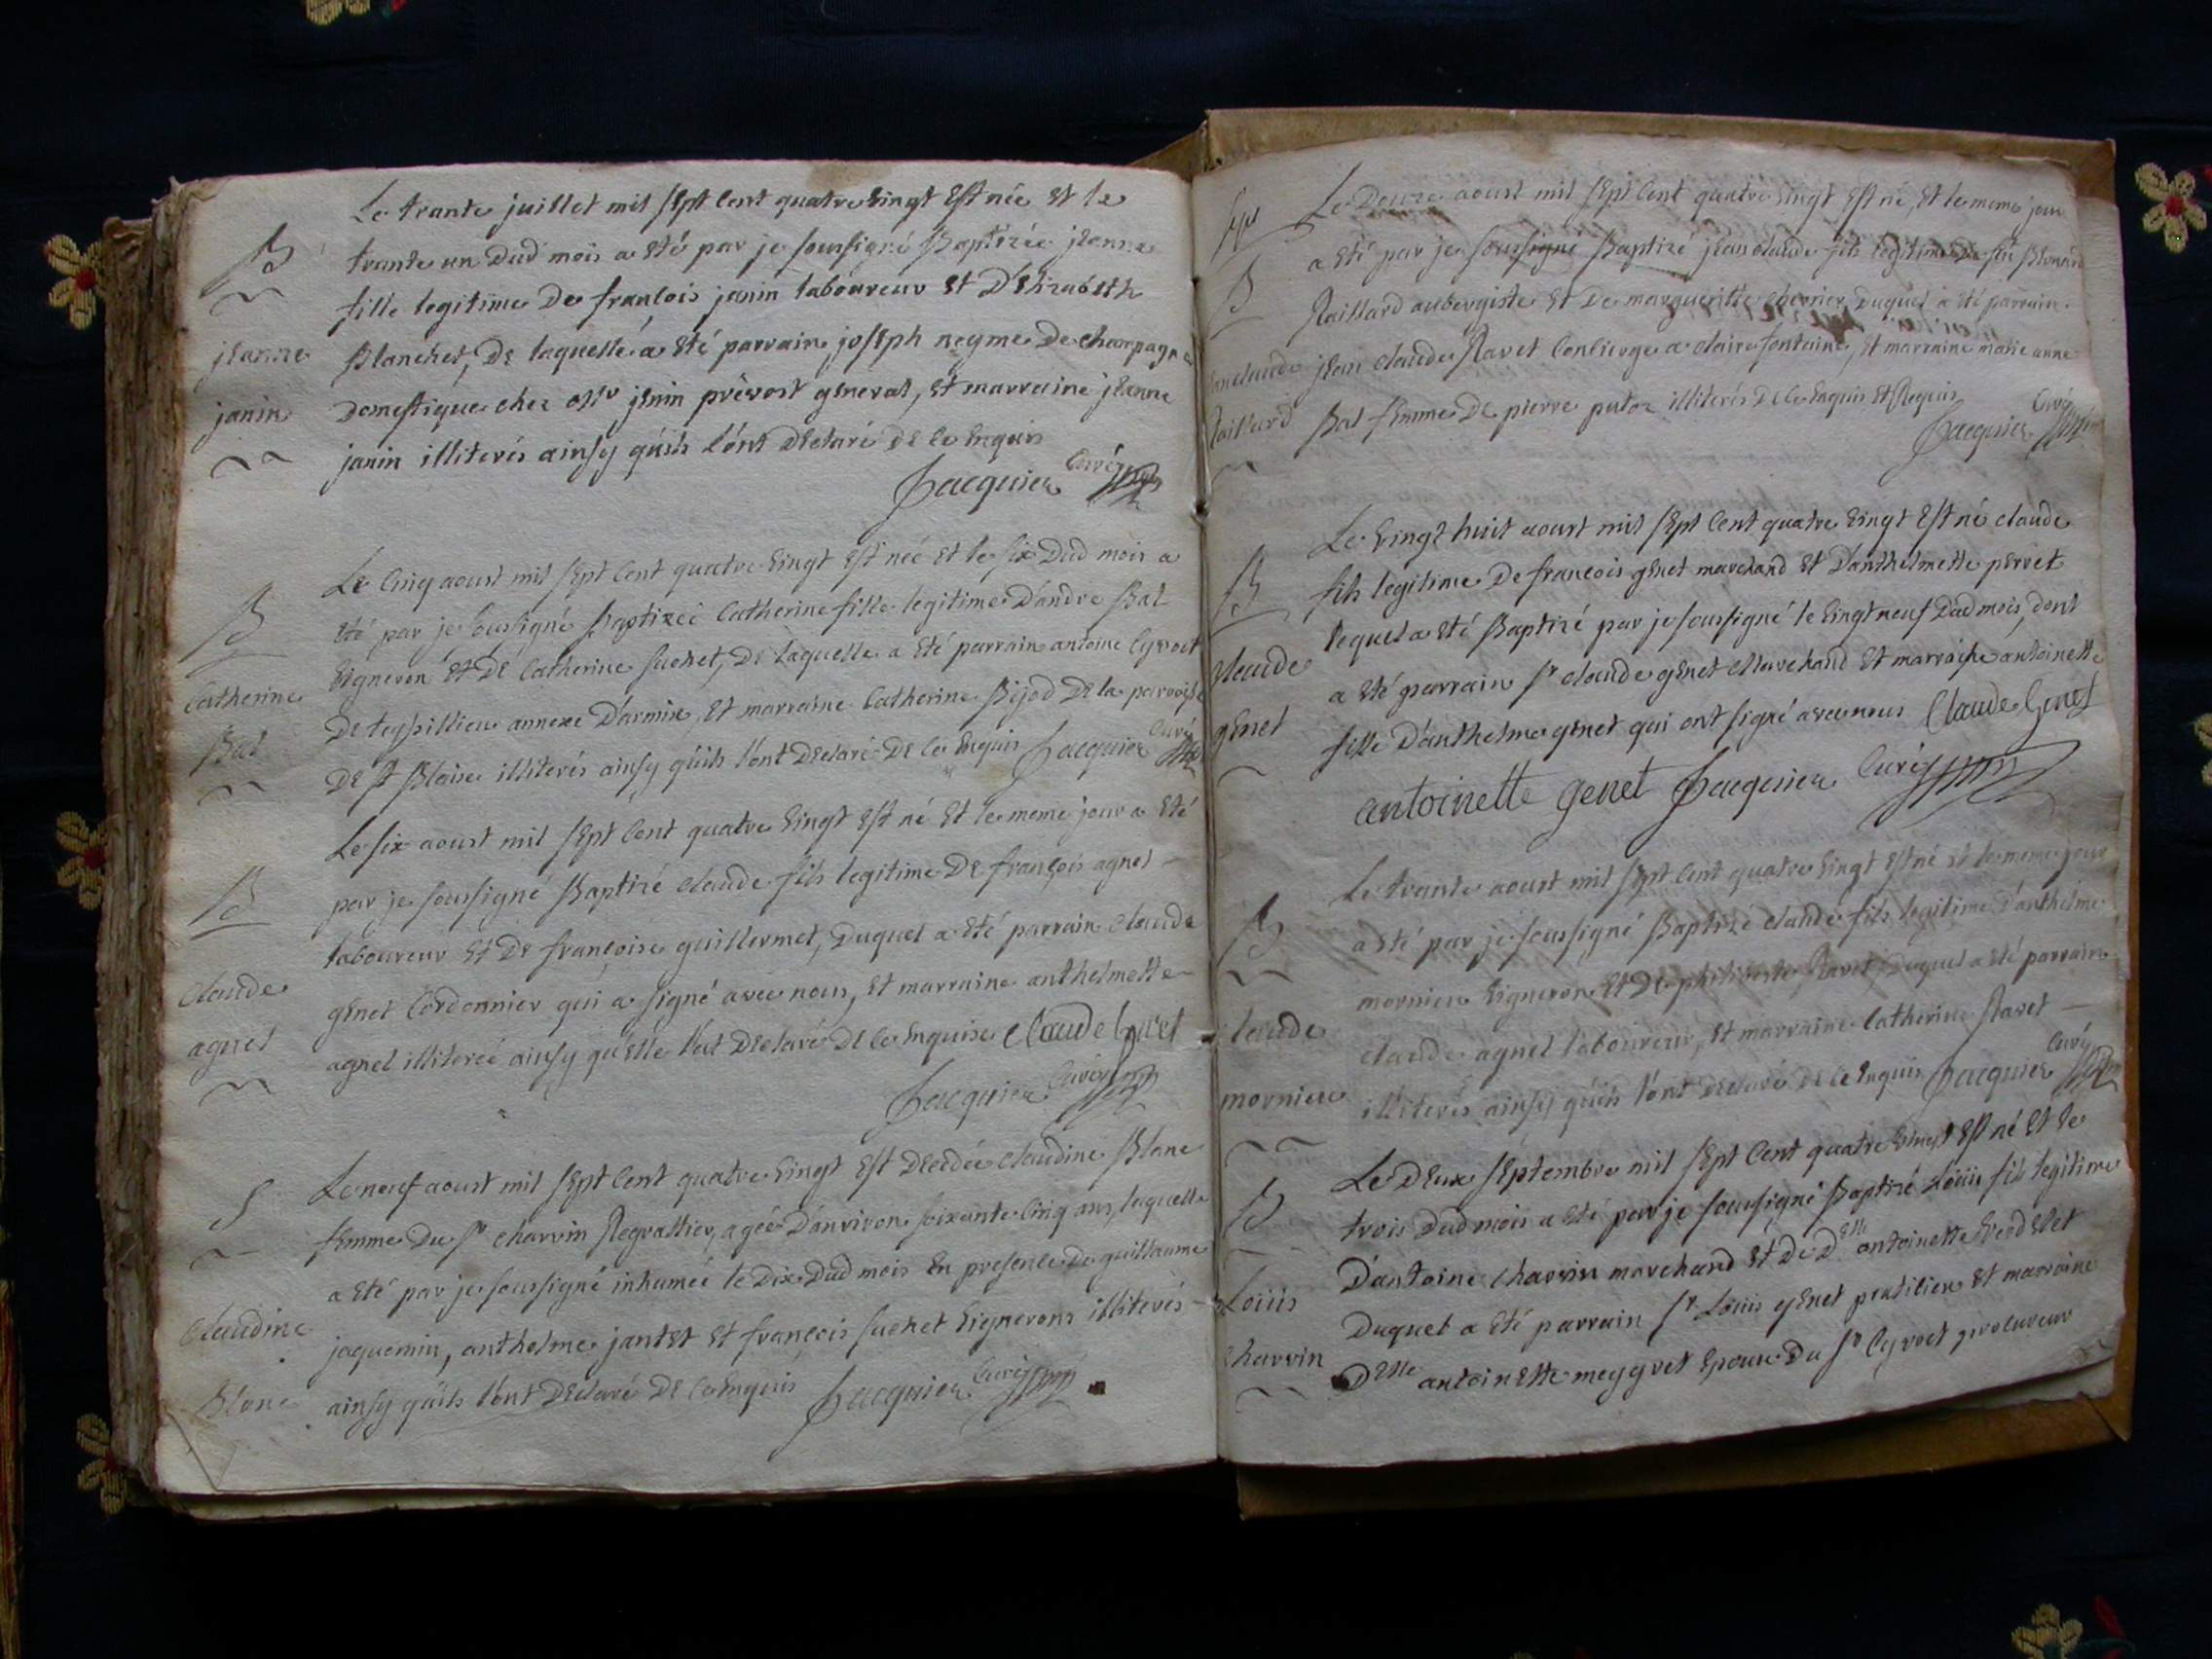 Le trante juillet mil sept cent quatre vingt est née et le
B
trante un dud mois a eté par je soussigné Baptizée jeanne
fille legitime de francois janin laboureur et d'Elizabeth
jeanne
Blanchet, de laquelle a eté parrain joseph neyme de champagne
janin
domestique chez Mr jenin prévost general, et marraine jeanne
janin illiterés ainsy qu'ils l'ont declaré de ce enquis
Jacquier Curé
Le cinq aoust mil sept cent quatre vingt est neé et le six dud mois a
B
eté par je soussigné Baptizeé Catherine fille legitime d'andré Bal
Catherine
vigneron et de Catherine suchet, de laquelle a eté parrain antoine Cyvoct
Bal
de teysillieu annexe d'armix, et marraine Catherine Bijod de la parroisse
de St Blaise illiterés ainsy qu'ils l'ont declaré de ce enquis Jacquier Curé
Le six aoust mil sept cent quatre vingt est né et le meme jour a eté
B
par je soussigné Baptizé claude fils legitime de françois agnel
laboureur et de françoise guillermet, duquel a eté parrain claude
claude
genet Cordonnier qui a signé avec nous, et marraine anthelmette
agnel
agnel illitereé ainsy qu'elle l'at declaré de ce enquise Claude Genet
Jacquier Curé
Le neuf aoust mil sept cent quatre vingt est decedée claudine Blanc
S
femme du Sr charvin Regrattier, ageé d'anviron soixante cinq ans, laquelle
a eté par je soussigné inhumeé le dix dud mois en presence de guillaume
claudine
jaquemin, anthelme jantet et françois suchet vignerons illiterés
Blanc
ainsy qu'ils l'ont declaré de ce enquis Jacquier Curé
Le douze aoust mil sept cent quatre vingt est né, et le meme jour
a eté par je soussigné Baptizé jean claude fils legitime de feu Bernard
B
Raillard aubergiste et de margueritte chervier, duquel a eté parrain
jean claude Ravet Concierge a claire fontaine, et marraine marie anne
Raillard
Bal femme de pierre putoz illiterés de ce enquis et Requis
Jacquier Curé
Le vingt huit aoust mil sept cent quatre vingt est né claude
B
fils legitime de francois genet marchand et d'anthelmette perret
lequel a eté Baptizé par je soussigné le vingt neuf dud mois, dont
claude
a eté parrain Sr claude genet Marchand et marraine antoinette
genet
fille d'anthelme genet qui ont signé avec nous Claude Genet
antoinette genet Jacquier Curé
Le trante aoust mil sept cent quatre vingt est né et le meme jour
B
a eté par je soussigné Baptizé claude fils legitime d'anthelme
mornieu vigneron et de philiberte Ravet, duquel a eté parrain
claude
claude agnel laboureur, et marraine Catherine Ravet
mornieu
illiterés ainsy qu'ils l'ont declaré de ce enquis Jacquier Curé
Le deux septembre mil sept cent quatre vingt est né et le
B
trois dud mois a eté par je soussigné Baptizé Loüis fils legitime
d'antoine charvin marchand et de Delle antoinette
Loüis
duquel a eté parrain Sr Loüis genet praticien et marraine
charvin
Delle antoinette meygret epouse du Sr Cyvoct procureur